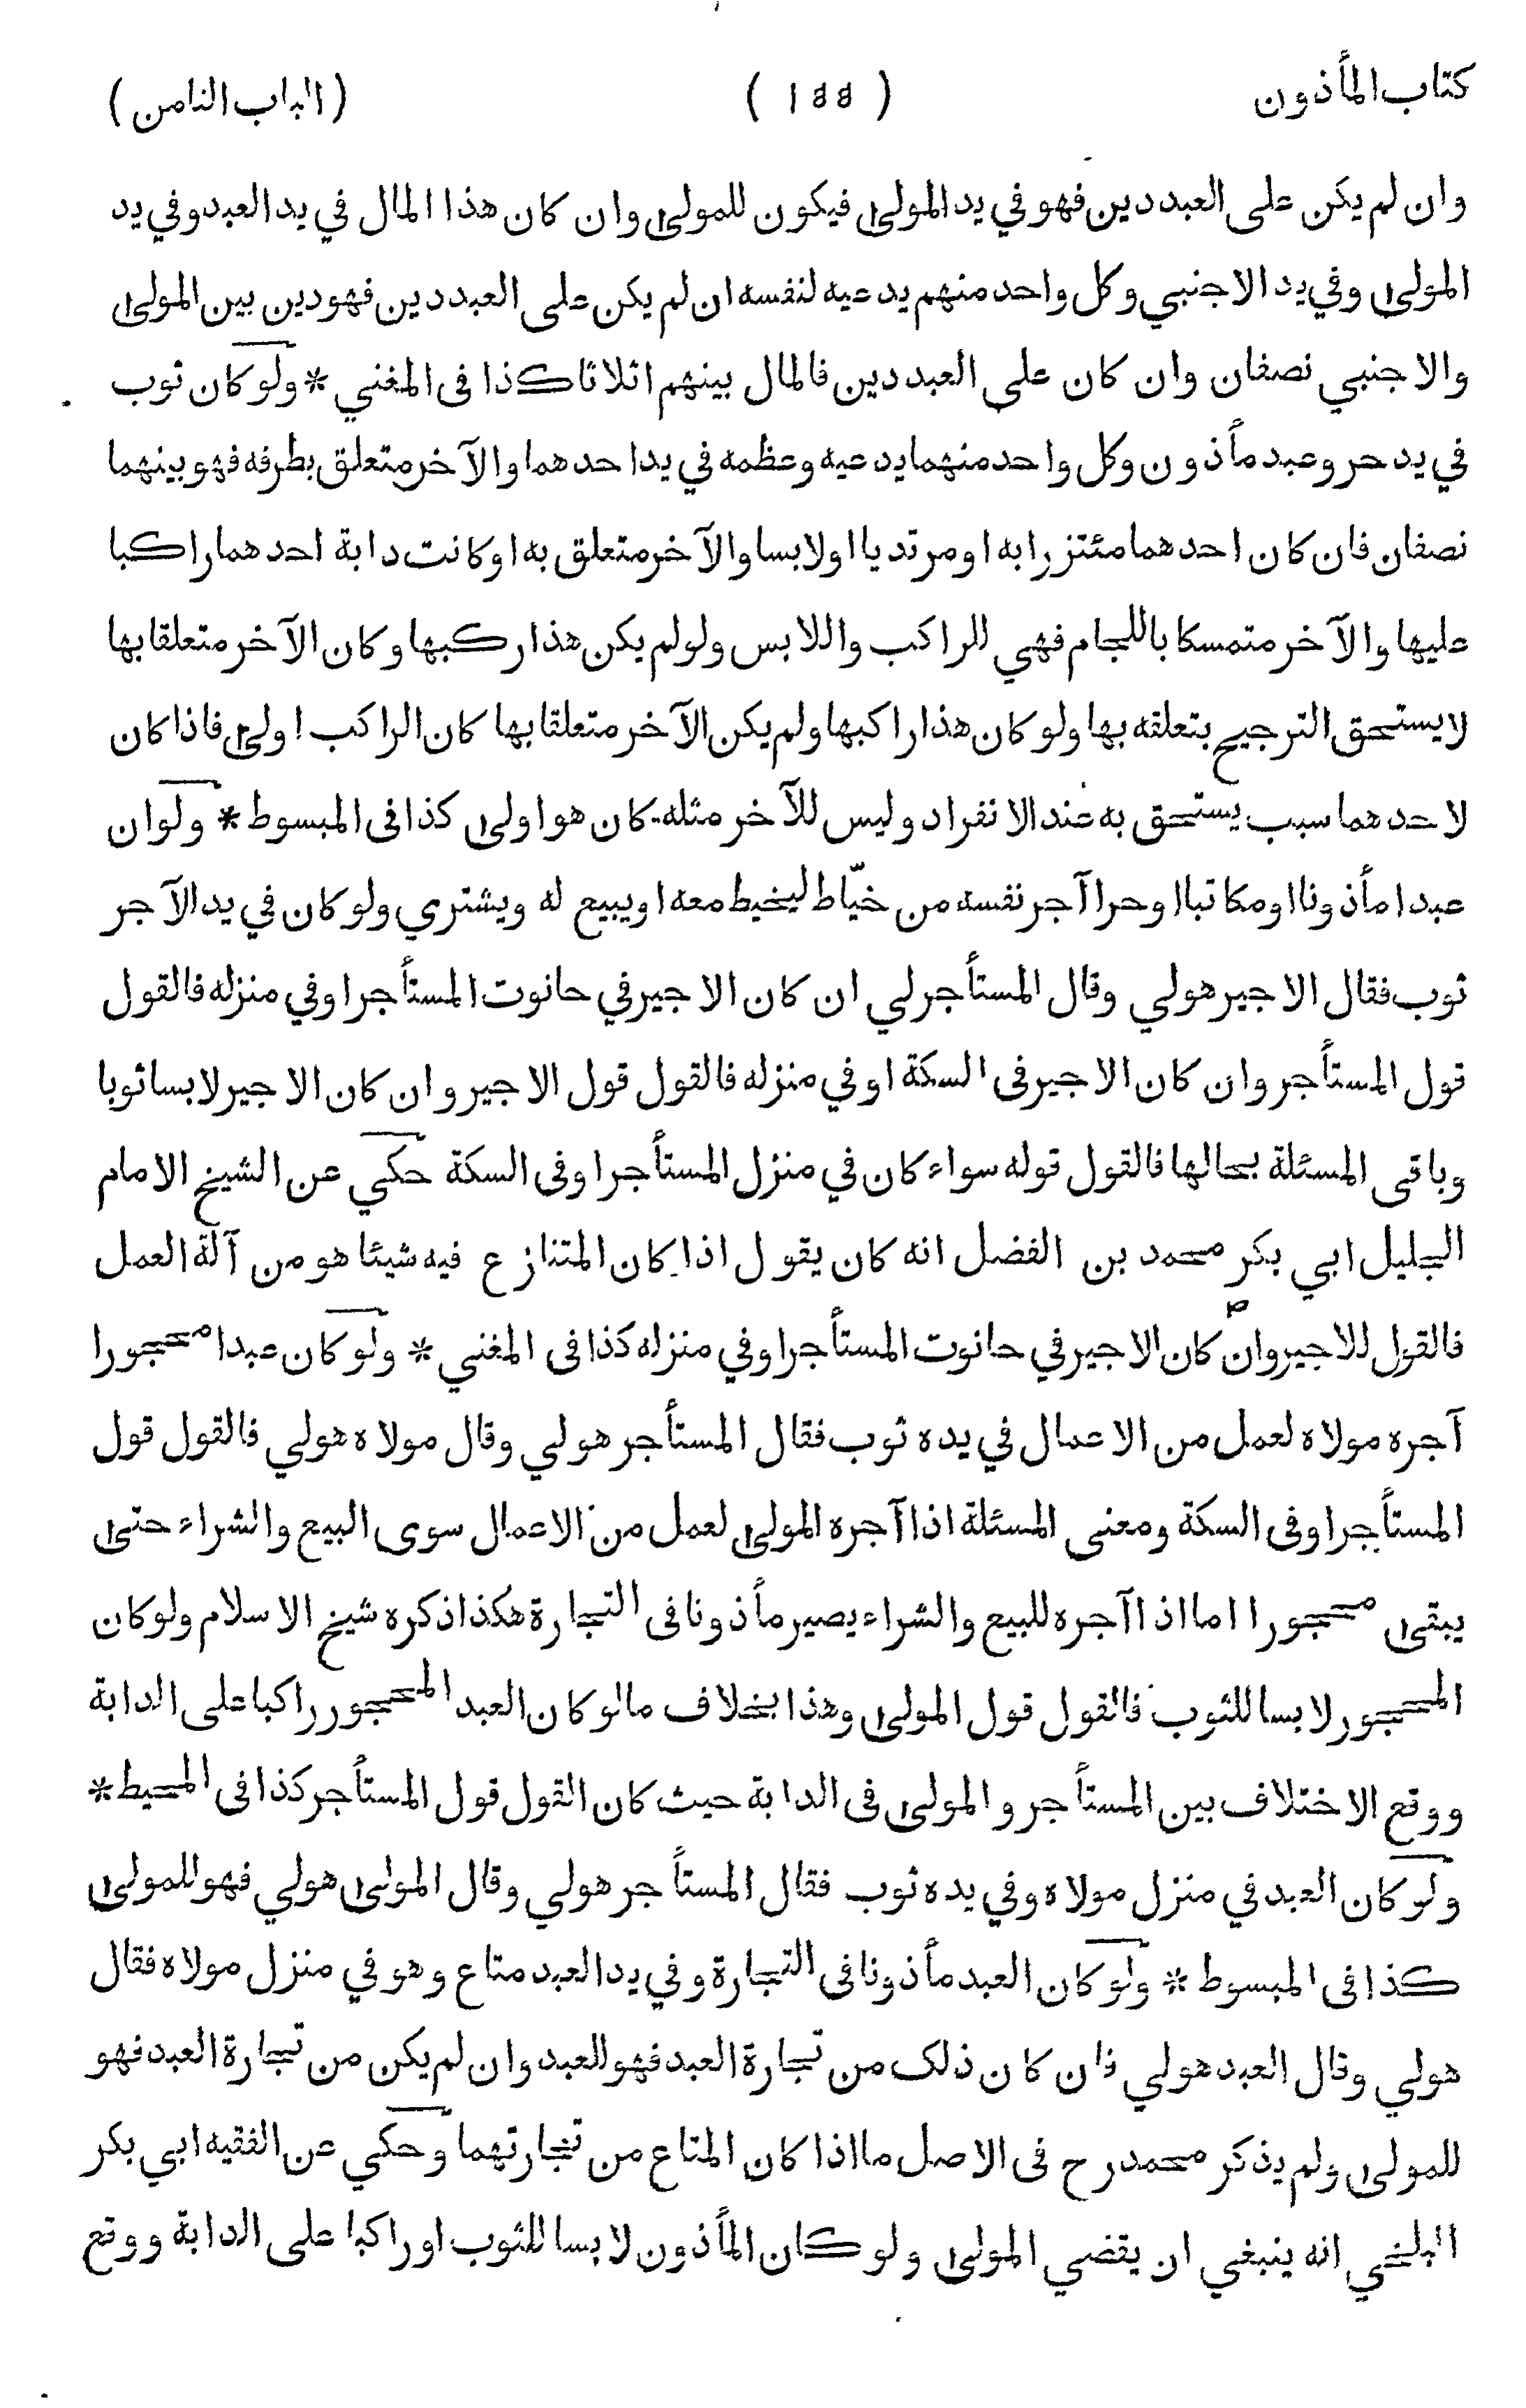 كتاب المأذون ( ١٤٤ ) (الباب الثامن)
وان لم يكن على العبد دين فهو في يد المولى فيكون للمولى وان كان هذا المال في يد العبد وفي يد
المولى وفي يد الاجنبي وكل واحد منهم يدعيه لنفسه ان لم يكن على العبد دين فهو دين بين المولى
والاجنبي نصفان وان كان على العبد دين فالمال بينهم اثلاثا كذا فى المغني * ولو كان ثوب
في يد حر وعبد مأذون وكل واحد منهما يدعيه وعظمه في يد احدهما والآخر متعلق بطرفه فهو بينهما
نصفان فان كان احدهما مئتزرا به او مرتديا او لابسا والآخر متعلق به او كانت دابة احدهما راكبا
عليها والآخر متمسكا باللجام فهي للراكب واللابس ولو لم يكن هذا ركبها وكان الآخر متعلقا بها
لا يستحق الترجيح بتعلقه بها ولو كان هذا راكبها ولم يكن الآخر متعلقا بها كان الراكب اولى فاذا كان
لاحدهما سبب يستحق به عند الانفراد وليس للآخر مثله كان هو اولى كذا فى المبسوط * ولو ان
عبدا مأذونا او مكاتبا او حرا آجر نفسه من خيّاط ليخيط معه او يبيع له ويشتري ولو كان في يد الآجر
ثوب فقال الاجير هو لي وقال المستأجر لي ان كان الاجير في حانوت المستأجر او في منزله فالقول
قول المستأجر وان كان الاجير فى السكة او في منزله فالقول قول الاجير وان كان الاجير لابسا ثوبا
وباقى المسئلة بحالها فالقول قوله سواء كان في منزل المستأجر او فى السكة حكي عن الشيخ الامام
الجليل ابي بكر محمد بن الفضل انه كان يقول اذا كان المتنازع فيه شيئا هو من آلة العمل
فالقول للاجير وان كان الاجير في حانوت المستأجر او في منزله كذا فى المغني * ولو كان عبدا محجورا
آجره مولاه لعمل من الاعمال في يده ثوب فقال المستأجر هو لي وقال مولاه هو لي فالقول قول
المستأجر او فى السكة ومعنى المسئلة اذا آجره المولى لعمل من الاعمال سوى البيع والشراء حتى
يبقى محجورا اما اذا آجره للبيع والشراء يصير مأذونا فى التجارة هكذا ذكره شيخ الاسلام ولو كان
المحجور لابسا للثوب فالقول قول المولى وهذا بخلاف ما لو كان العبد المحجور راكبا على الدابة
ووقع الاختلاف بين المستأجر والمولى فى الدابة حيث كان القول قول المستأجر كذا فى المحيط *
ولو كان العبد في منزل مولاه وفي يده ثوب فقال المستأجر هو لي وقال المولى هو لي فهو للمولى
كذا فى المبسوط * ولو كان العبد مأذونا فى التجارة وفي يد العبد متاع وهو في منزل مولاه فقال
هو لي وقال العبد هو لي فان كان ذلك من تجارة العبد فهو للعبد وان لم يكن من تجارة العبد فهو
للمولى ولم يذكر محمد رح فى الاصل ما اذا كان المتاع من تجارتهما وحكي عن الفقيه ابي بكر
البلخي انه ينبغي ان يقضي المولى ولو كان المأذون لابسا للثوب او راكبا على الدابة ووقع